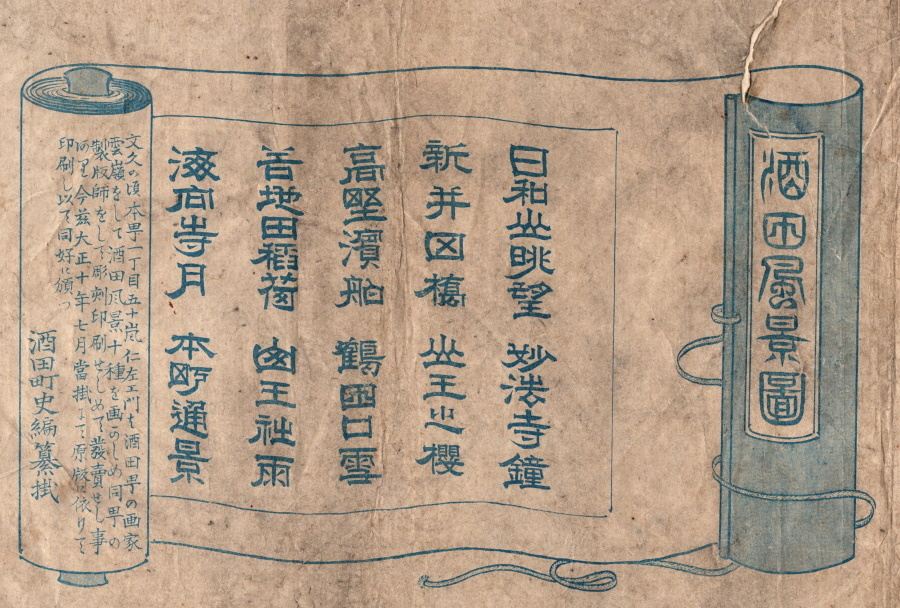 酒田風景圖
日和山眺望 妙法寺鐘
新井田橋 山王之櫻
高野濱舶 鶴田口雪
谷地田稻荷 山王社雨
海向寺月 本町通景
文久の頃本甼一丁目五十嵐仁左エ門 酒田甼の画家
雲嶺をして酒田風景十種を画かしめ同甼の
製版師をして彫刻印刷せしめて發賣せし事
あり今茲大正十年七月當掛にて原版に依りて
印刷し以て同好に頒つ
酒田町史編纂掛